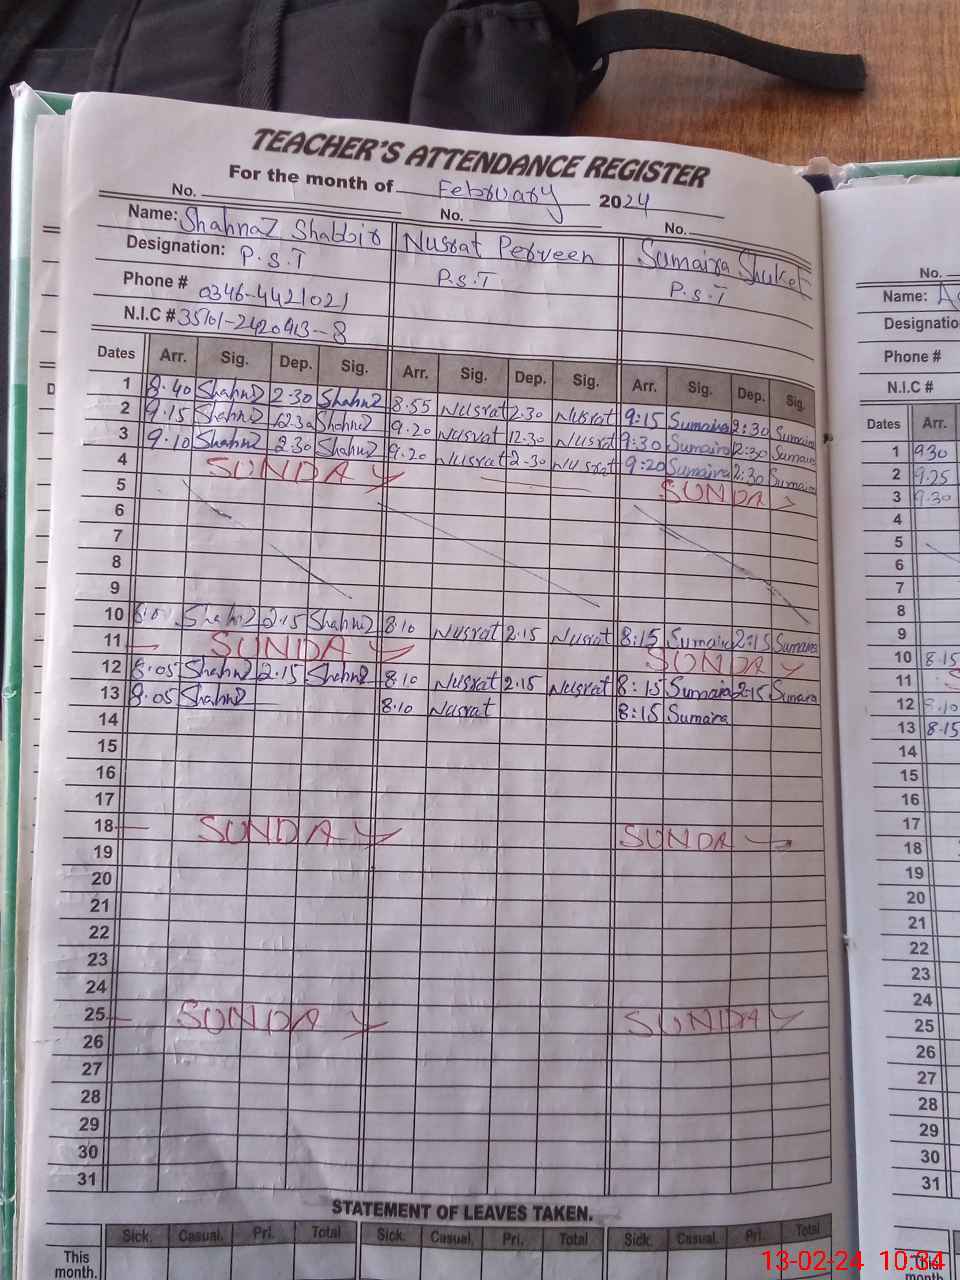 TEACHER'S ATTENDANCE REGISTER
For the month of February 2024
No. No. No.
Name: Shahnaz Shabbir Nusrat Perveen Sumaira Shuket
Designation: P.S.T P.S.T P.S.T
Phone # 0346-4421021
N.I.C #
Dates Arr. Sig. Dep. Sig. Arr. Sig. Dep. Sig. Arr. Sig. Dep. Sig.
1 8.40 Shahnz 2.30 Shahnz 8.55 Nusrat 2.30 Nusrat 9:15 Sumaira 2:30 Sumaira
2 9.15 Shahnz 12.30 Shahnz 9.20 Nusrat 12.30 Nusrat 9:30 Sumaira 12:30 Sumaira
3 9.10 Shahnz 2.30 Shahnz 9.20 Nusrat 2.30 Nusrat 9:20 Sumaira 2:30 Sumaira
4 SUNDAY SUNDAY
5
6
7
8
9
10 Shahnz 2.15 Shahnz 8.10 Nusrat 2.15 Nusrat 8:15 Sumaira 2:15 Sumaira
11 SUNDAY SUNDAY
12 8.05 Shahnz 2.15 Shahnz 8.10 Nusrat 2.15 Nusrat 8:15 Sumaira 2:15 Sumaira
13 8.05 Shahnz 8.10 Nusrat 8:15 Sumaira
14
15
16
17
18 SUNDAY SUNDAY
19
20
21
22
23
24
25 SUNDAY SUNDAY
26
27
28
29
30
31
STATEMENT OF LEAVES TAKEN.
Sick. Casual. Pri. Total Sick. Casual. Pri. Total Sick. Casual. Pri. Total
This month.
No.
Name:
Designatio
Phone #
N.I.C #
Dates Arr.
1 930
2 9.25
3 9.30
4
5
6
7
8
9
10 8.15
11
12 8.10
13 8.15
14
15
16
17
18
19
20
21
22
23
24
25
26
27
28
29
30
31
This month.
13-02-24 10:34